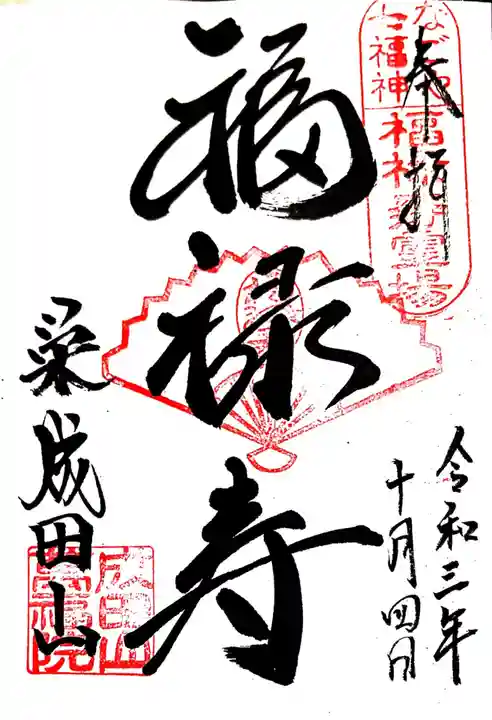 奉拝
なごや
七福神
福禄寿霊場
福禄寿
令和三年
十月四日
栄成田山
成田山
萬福院